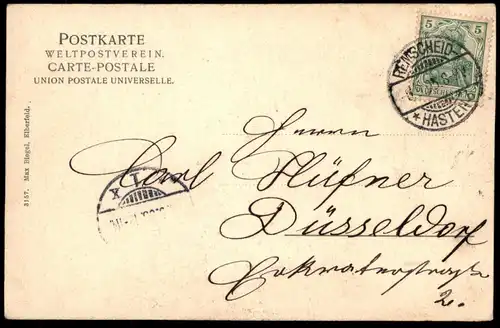 POSTKARTE
WELTPOSTVEREIN.
CARTE-POSTALE
UNION POSTALE UNIVERSELLE.
5 5
REMSCHEID-
* HASTEN
3157. Max Biegel, Elberfeld.
Herrn
Carl Hüfner
Düsseldorf
2.